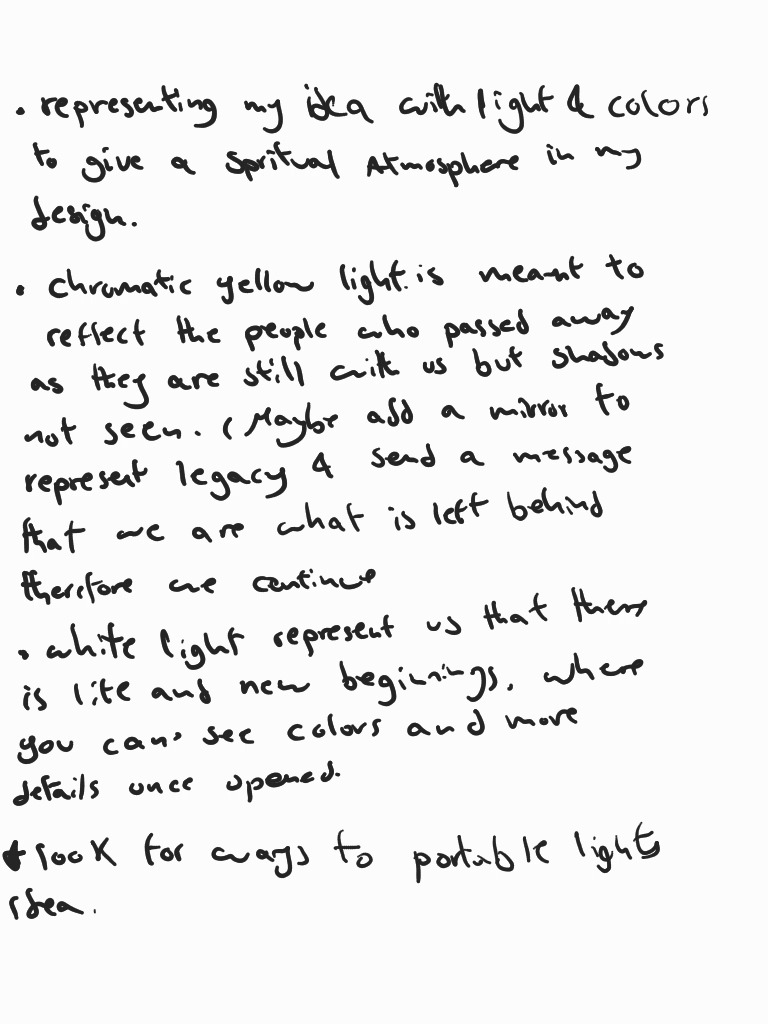 • representing my idea with light & colors
to give a Spritual Atmosphere in my
design.
• Chromatic yellow light is meant to
reflect the people who passed away
as they are still with us but shadows
not seen. (Maybe add a mirror to
represent legacy & send a message
that we are what is left behind
therefore we continue
• white light represent us that there
is life and new beginnings, where
you can see colors and more
details once opened.
look for ways to portable light
idea.